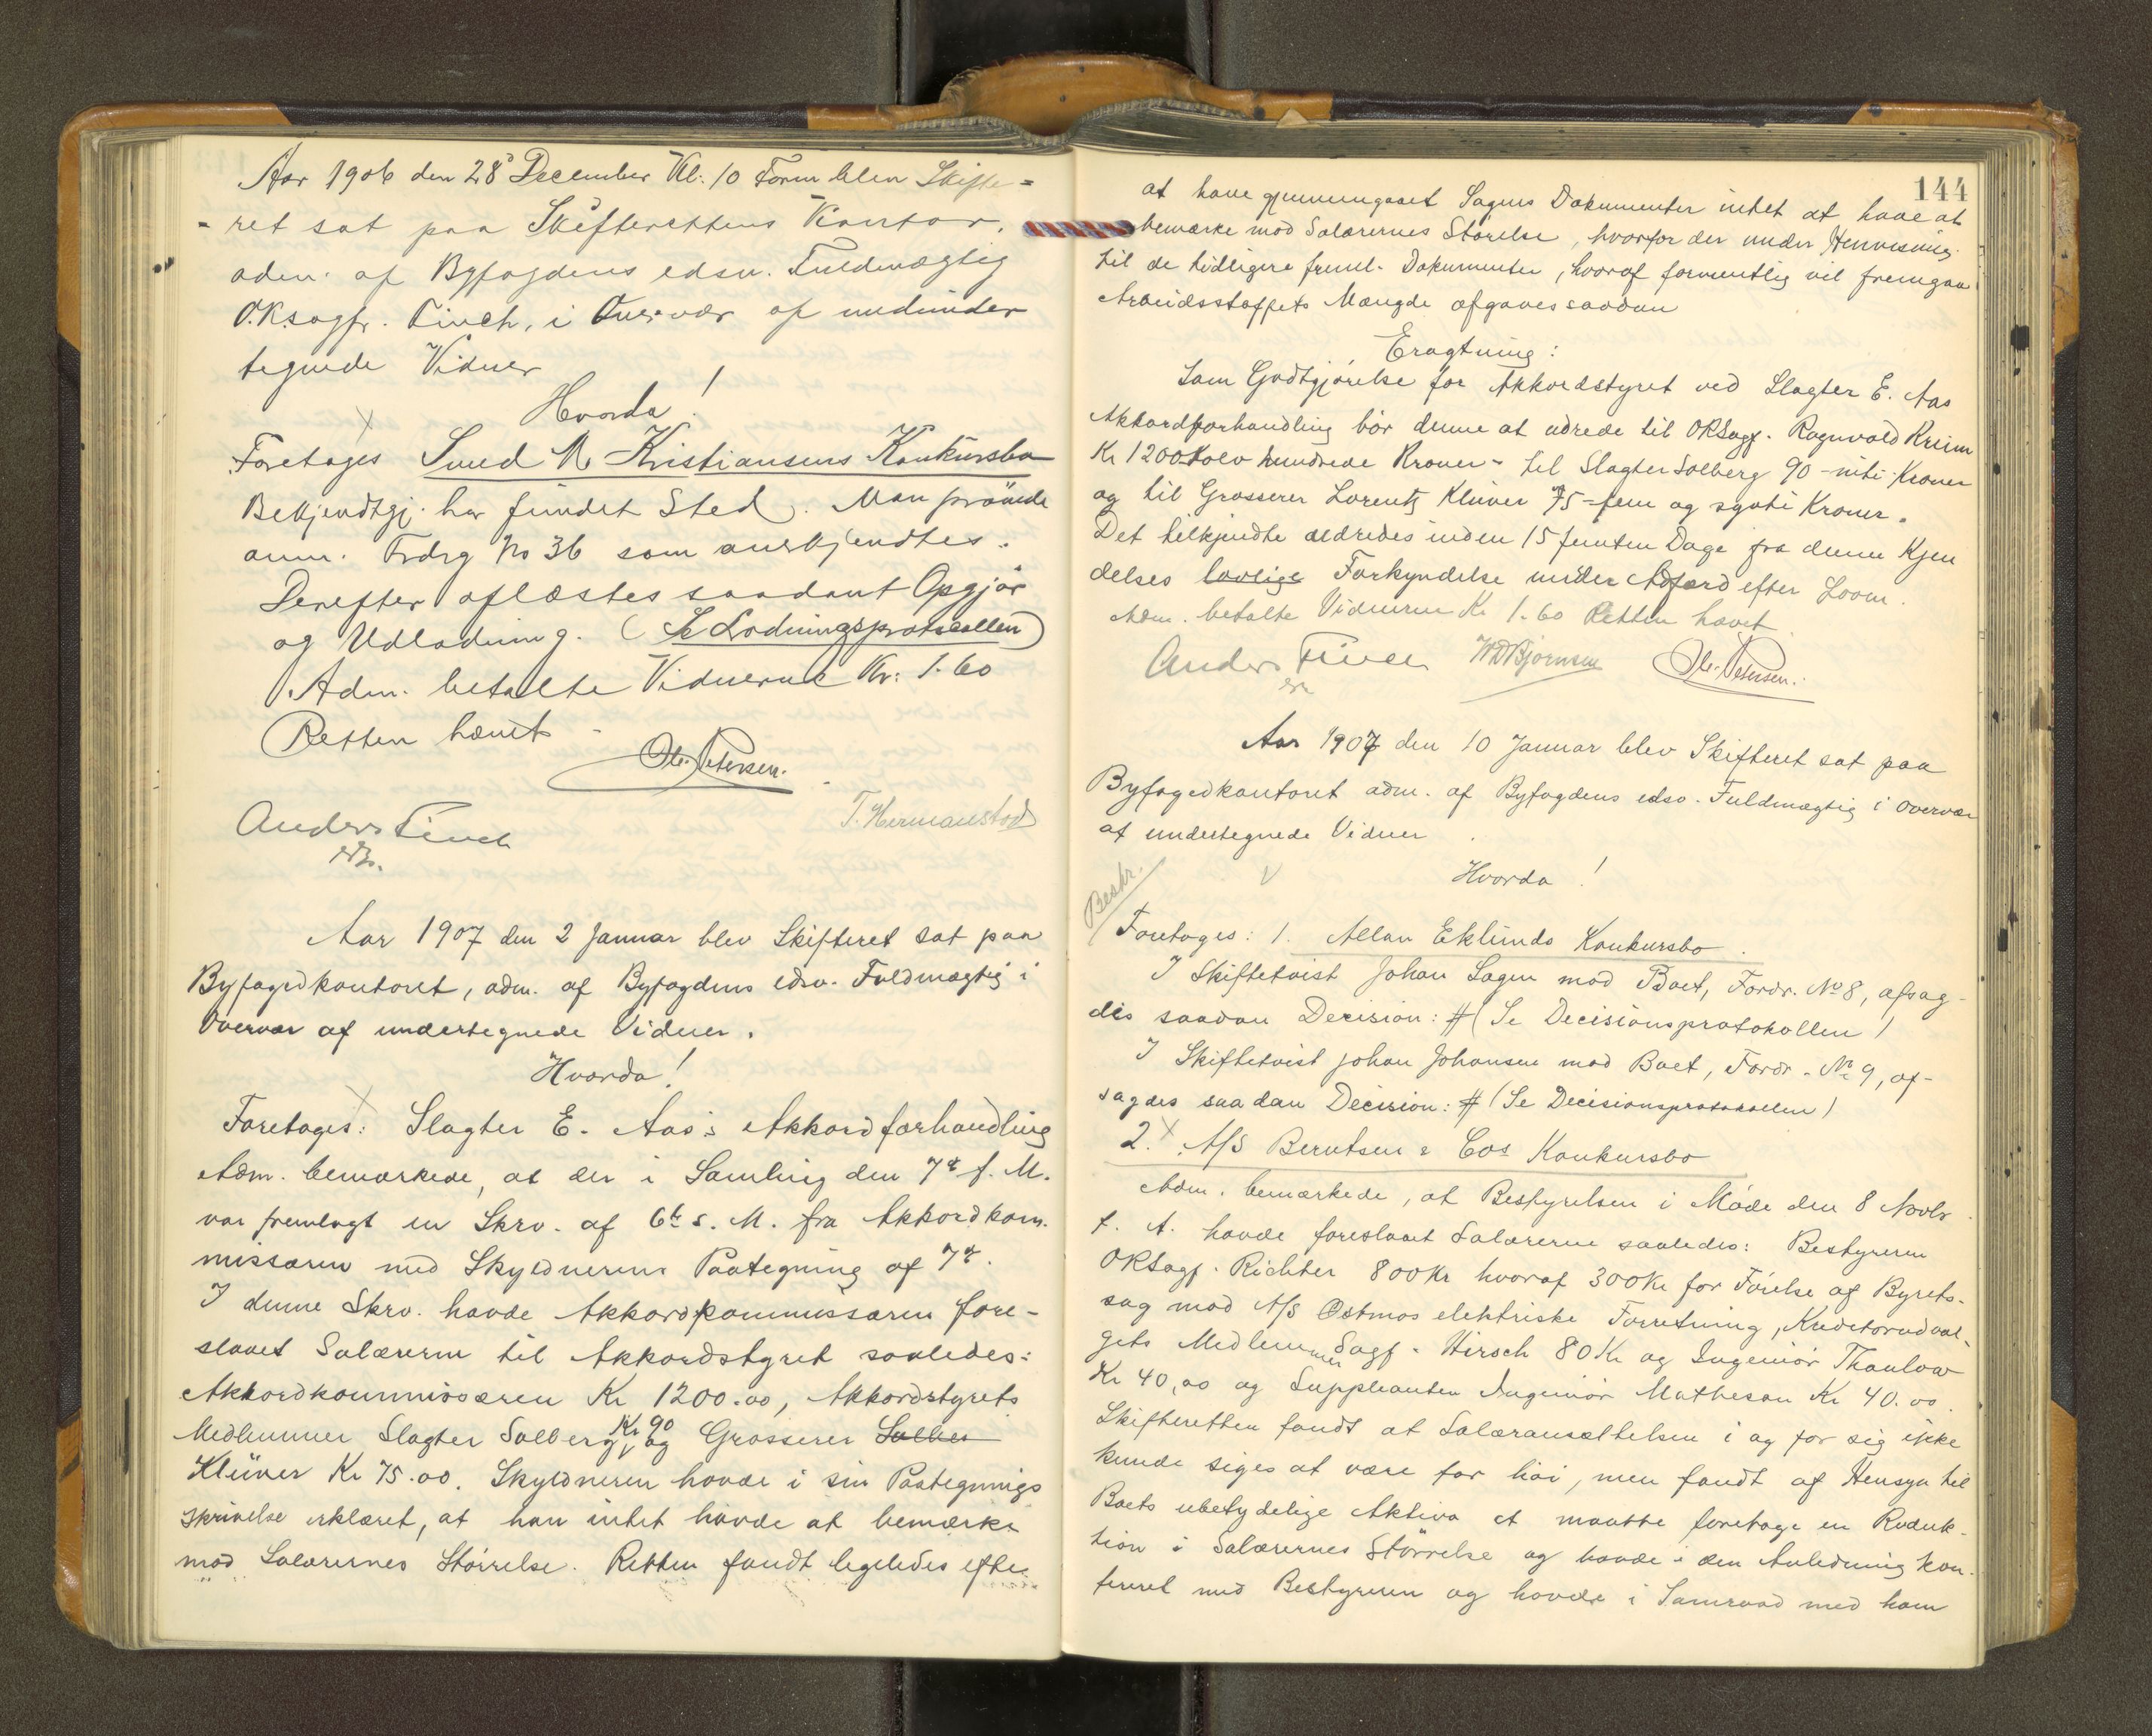 Aar 1906 den 28 December Kl: 10 Form blev Skifte=
=ret sat paa Skifterettens Kontor,
adm. af Byfogdens edsv. Fuldmægtig
O.R.sagf. Finch, i Overvær af medunder
tegnede Vidner
Hvorda!
Foretages Svend M Kristiansens Konkursbo
Bekjendtgj. har fundet Sted. Man prøvede
anm. Frdrg No 36 som anerkjendtes.
Derefter oplæstes saadant Opgjør
og Udlodning. (Se Lodningsprotocollen)
Adm. betalte Vidnerne Kr: 1.60
Retten hævet
Ole Petersen.
Anders Finch
T. Hermanstad
Aar 1907 den 2 Januar blev Skifteret sat paa
Byfogedkontoret, adm. af Byfogdens edsv. Fuldmægtig i
Overvær af undertegnede Vidner.
Hvorda!
Foretages: Slagter E. Aas's Akkordforhandling
Adm. bemærkede, at der i Samling den 7de f. M.
var fremlagt en Skrv. af 6te s. M. fra Akkordkom-
missæren med Skyldnerens Paategning af 7de.
I denne Skrv. havde Akkordkommissæren fore-
slaaet Salærerne til Akkordstyret saaledes:
Akkordkommissæren Kr 1200.00, Akkordstyrets
Medlemmer Slagter Solberg Kr 90 og Grosserer Solber
Klüver Kr 75.00. Skyldneren havde i sin Paategnings
skrivelse erklæret, at han intet havde at bemærke
mod Salærernes Størrelse. Retten fandt ligeledes efter
144
at have gjennemgaaet Sagens Dokumenter intet at have at
bemærke mod Salærernes Størelse, hvorfor der under Henvisning
til de tidligere freml. Dokumenter, hvoraf formentlig vil fremgaa
Arbeidsstoffets Mængde afgaves saadan
Eragtning:
Som Godtgjørelse for Akkordstyret ved Slagter E. Aas
Akkordforhandling bør denne at udrede til ORSagf. Ragnvald Kreim
Kr 1200 tolv hundrede Kroner - til Slagter Solberg 90 - niti Kroner
og til Grosserer Lorentz Klüver 75 - fem og sytti Kroner.
Det tilkjendte udredes inden 15 femten Dage fra denne Kjen
delses lovlige Forkyndelse under Adfærd efter Loven.
Adm. betalte Vidnerne Kr 1.60 Retten hævet
Anders Finch WD Bjørnsen Ole Petersen.
Aar 1907 den 10 Januar blev Skifteret sat paa
Byfogedkontoret adm. af Byfogdens edsv. Fuldmægtig i Overvær
af undertegnede Vidner
Hvorda!
Beskr.
Foretages: 1. Allan Eklunds Konkursbo.
I Skiftetvist Johan Sagen mod Boet, Fordr. No 8, afsag-
des saadan Decision: # (Se Decisionsprotokollen)
I Skiftetvist Johan Johansen mod Boet, Fordr. No 9, af-
sagdes saadan Decision: # (Se Decisionsprotokollen)
2. A/S Berntsen & Cos Konkursbo
Adm. bemærkede, at Bestyrelsen i Møde den 8 Novbr
f. A. havde foreslaaet Salærerne saaledes: Bestyreren
ORSagf. Richter 800 Kr hvoraf 300 Kr for Førelse af Byrets-
sag mod A/S Østmos elektriske Forretning, Kreditorudval-
gets Medlemmer Sagf. Hirsch 80 Kr og Ingeniør Thaulow
Kr 40,00 og Suppleanten Ingeniør Matheson Kr 40.00.
Skifteretten fandt at Salæransættelsen i og for sig ikke
kunde siges at være for høi, men fandt af Hensyn til
Boets ubetydelige Aktiva at maatte foretage en Reduk-
tion i Salærernes Størrelse og havde i den Anledning kon-
fereret med Bestyreren og havde i Samraad med ham